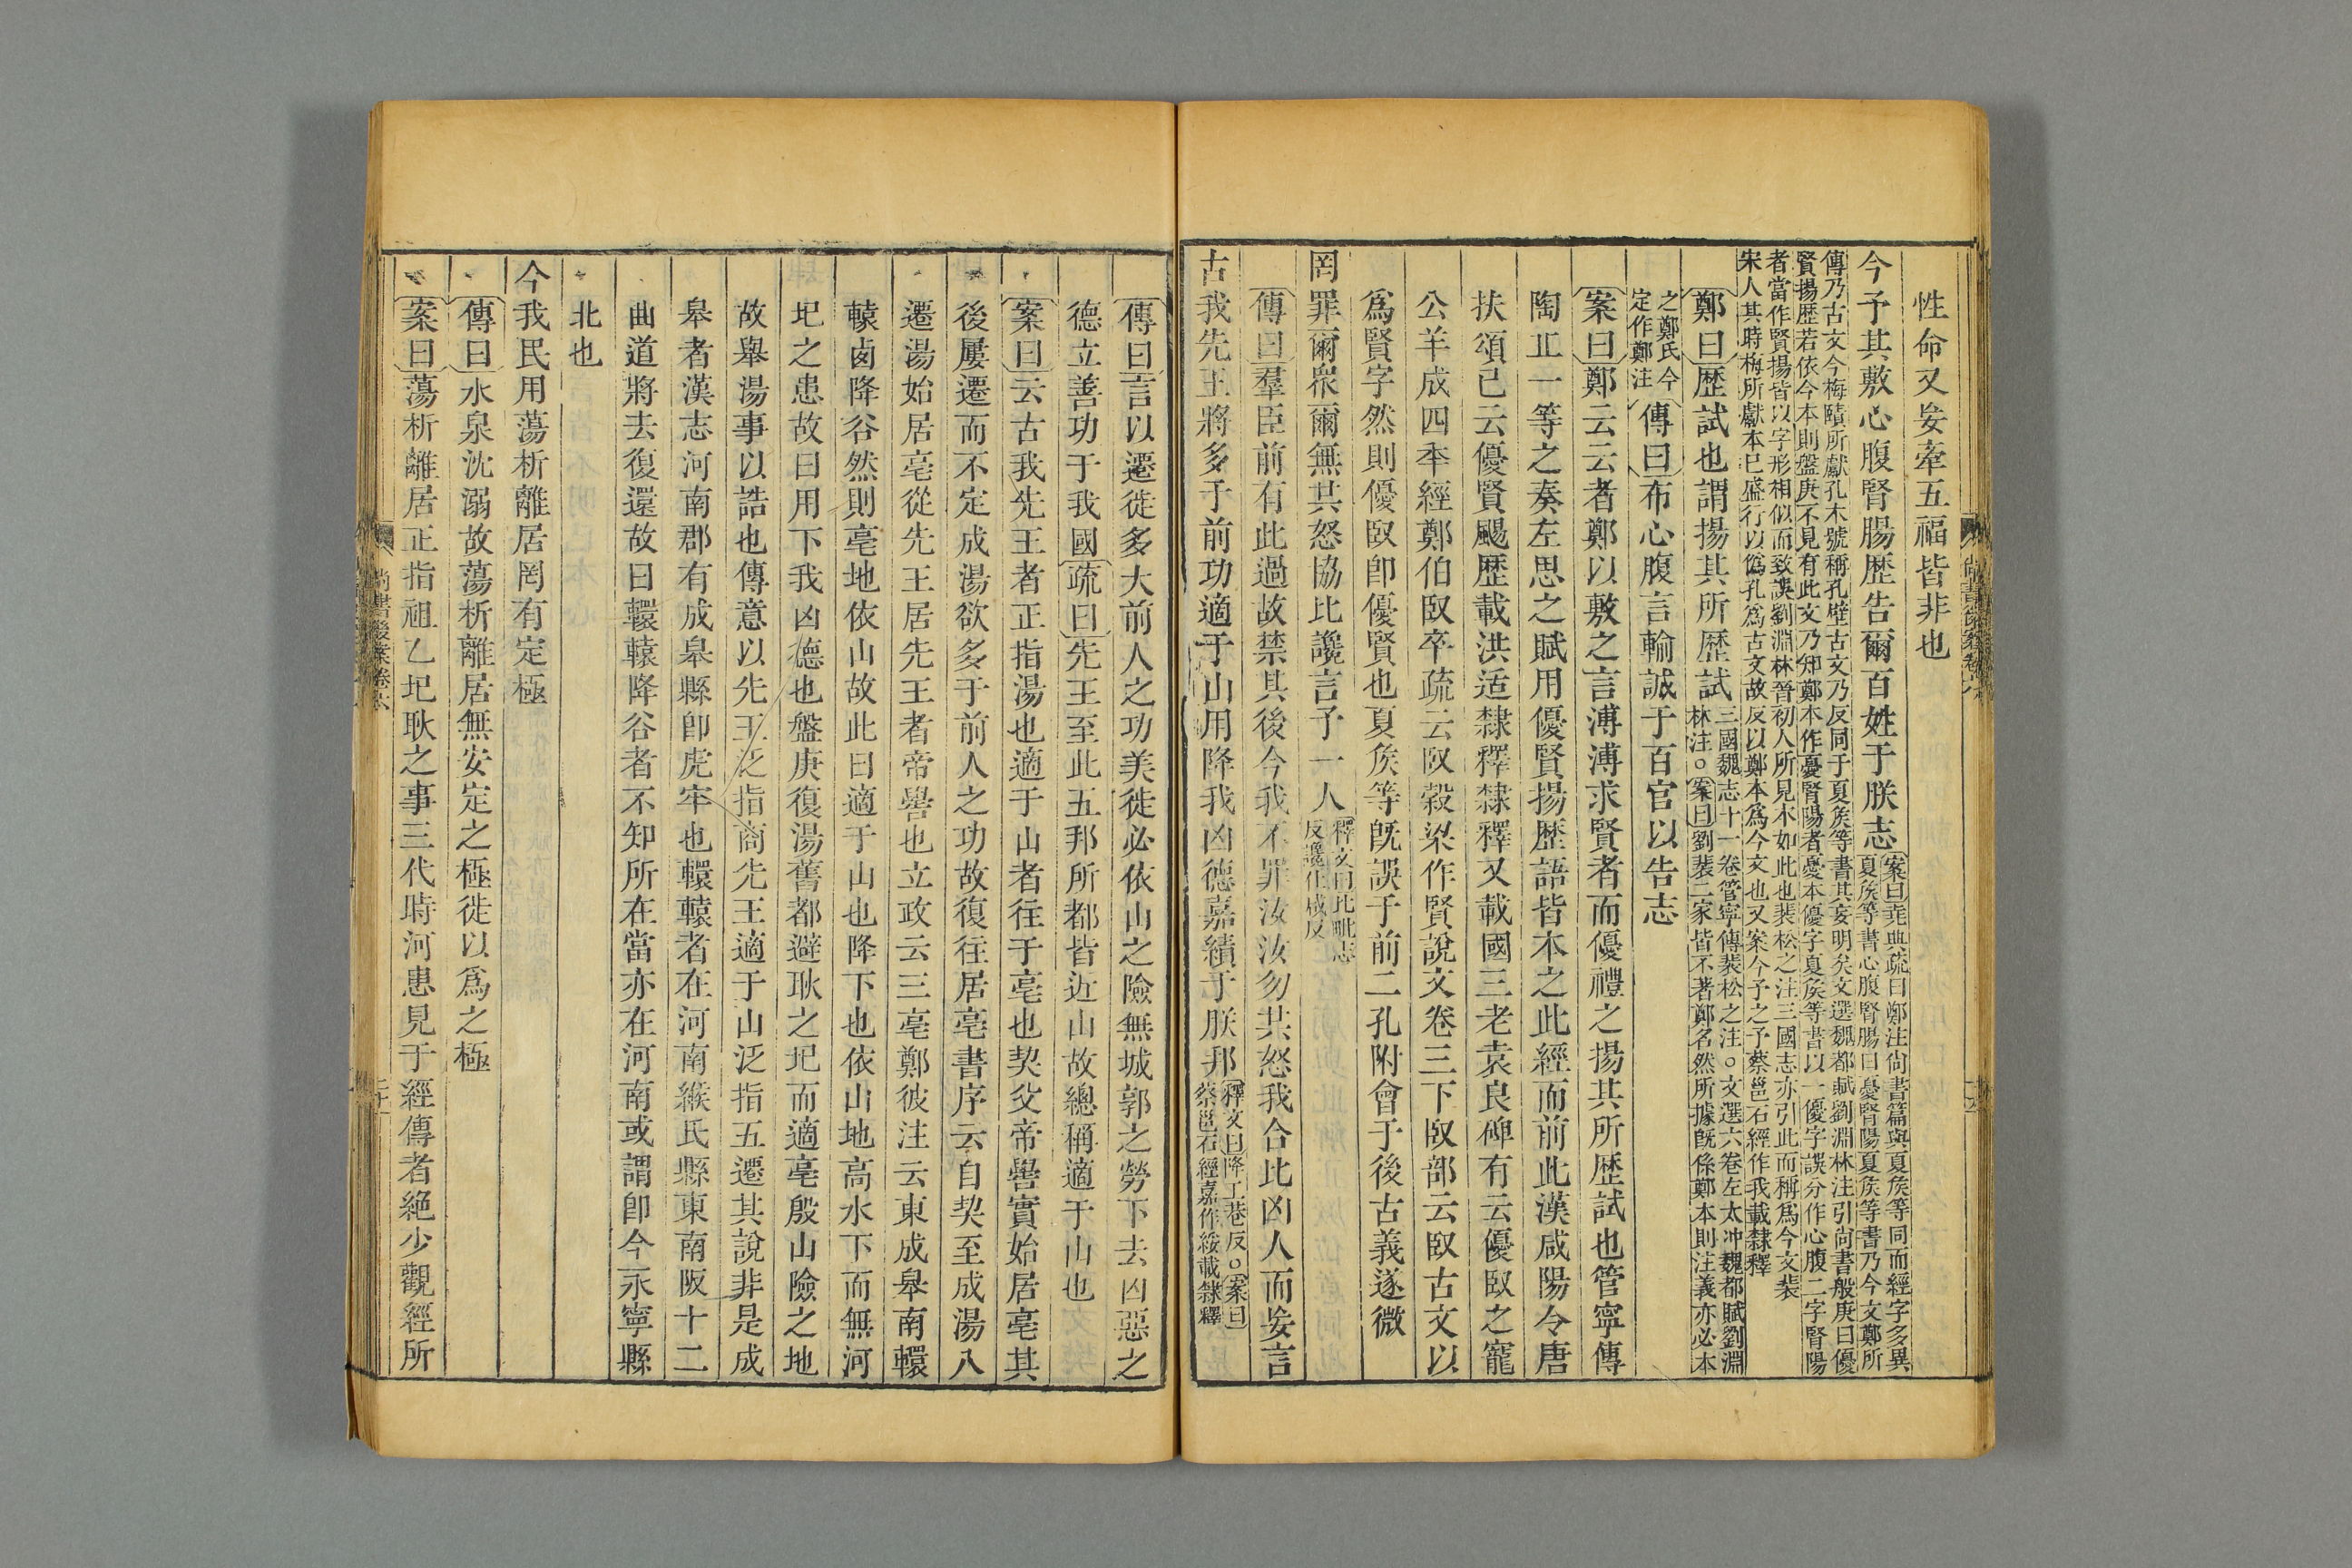 性命又妄牽五福皆非也
今予其敷心腹腎腸歷告爾百姓于朕志
案曰堯典疏曰鄭注尙書篇與夏矦等同而經字多異
夏矦等書心腹腎腸曰憂腎陽夏矦等書乃今文鄭所
傳乃古文今梅賾所獻孔本號稱孔壁古文乃反同于夏矦等書其妄明矣文選魏都賦劉淵林注引尙書般庚曰優
賢揚歷若依今本則盤庚不見有此文乃知鄭本作憂腎陽者憂本優字夏矦等書以一優字誤分作心腹二字腎陽
者當作賢揚皆以字形相似而致誤劉淵林晉初人所見本如此也裴松之注三國志亦引此而稱爲今文裴
宋人其時梅所獻本已盛行以僞孔爲古文故反以鄭本爲今文也又案今予之予蔡邕石經作我載隸釋
鄭曰歷試也謂揚其所歷試
三國魏志十一卷管寧傳裴松之注。文選六卷左太冲魏都賦劉淵
林注。案曰劉裴二家皆不著鄭名然所據旣係鄭本則注義亦必本
之鄭氏今
定作鄭注
傳曰布心腹言輸誠于百官以告志
案曰鄭云云者鄭以敷之言溥溥求賢者而優禮之揚其所歷試也管寧傳
陶丘一等之奏左思之賦用優賢揚歷語皆本之此經而前此漢咸陽令唐
扶頌已云優賢颺歷載洪适隸釋隸釋又載國三老袁良碑有云優臤之寵
公羊成四年經鄭伯臤卒疏云臤穀梁作賢說文卷三下臤部云臤古文以
爲賢字然則優臤卽優賢也夏矦等旣誤于前二孔附會于後古義遂微
罔罪爾眾爾無共怒協比讒言予一人
釋文曰比毗志
反讒仕咸反
傳曰羣臣前有此過故禁其後今我不罪汝汝勿共怒我合比凶人而妄言
古我先王將多于前功適于山用降我凶德嘉績于朕邦
釋文曰降工巷反。案曰
蔡邕石經嘉作綏載隸釋
傳曰言以遷徙多大前人之功美徙必依山之險無城郭之勞下去凶惡之
德立善功于我國疏曰先王至此五邦所都皆近山故總稱適于山也
案曰云古我先王者正指湯也適于山者往于亳也契父帝嚳實始居亳其
後屢遷而不定成湯欲多于前人之功故復往居亳書序云自契至成湯八
遷湯始居亳從先王居先王者帝嚳也立政云三亳鄭彼注云東成皋南轘
轅西降谷然則亳地依山故此曰適于山也降下也依山地高水下而無河
圮之患故曰用下我凶德也盤庚復湯舊都避耿之圮而適亳殷山險之地
故舉湯事以誥也傳意以先王泛指商先王適于山泛指五遷其說非是成
皋者漢志河南郡有成皋縣卽虎牢也轘轅者在河南緱氏縣東南阪十二
曲道將去復還故曰轘轅降谷者不知所在當亦在河南或謂卽今永寧縣
北也
今我民用蕩析離居罔有定極
傳曰水泉沈溺故蕩析離居無安定之極徙以爲之極
案曰蕩析離居正指祖乙圮耿之事三代時河患見于經傳者絕少觀經所
尙書後案卷六